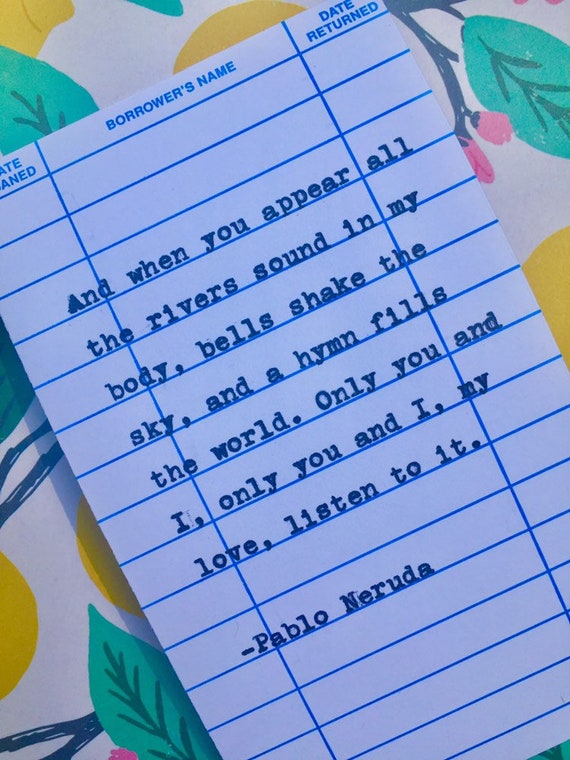 DATE
RETURNED
BORROWER'S NAME
ATE
ANED
And when you appear all
the rivers sound in my
body, bells shake the
sky, and a hymn fills
the world. Only you and
I, only you and I, my
love, listen to it.
-Pablo Neruda